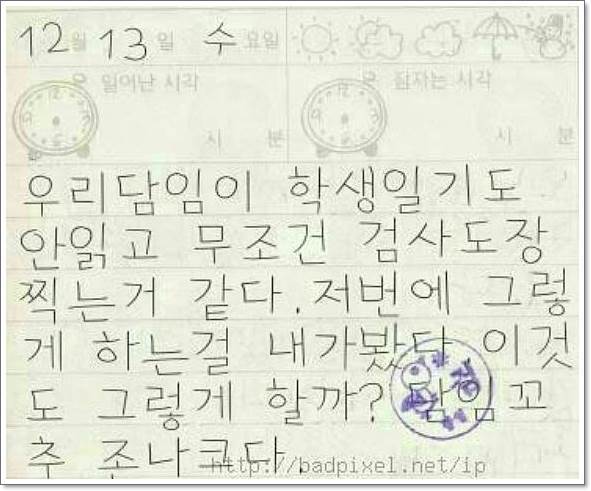 12월 13일 수요일
일어난 시각 잠자는 시각
시 분 시 분
우리담임이 학생일기도
안읽고 무조건 검사도장
찍는거 같다. 저번에 그렇
게 하는걸 내가봤다. 이것
도 그렇게 할까? 담임꼬
추 존나크다.
http://badpixel.net/ip